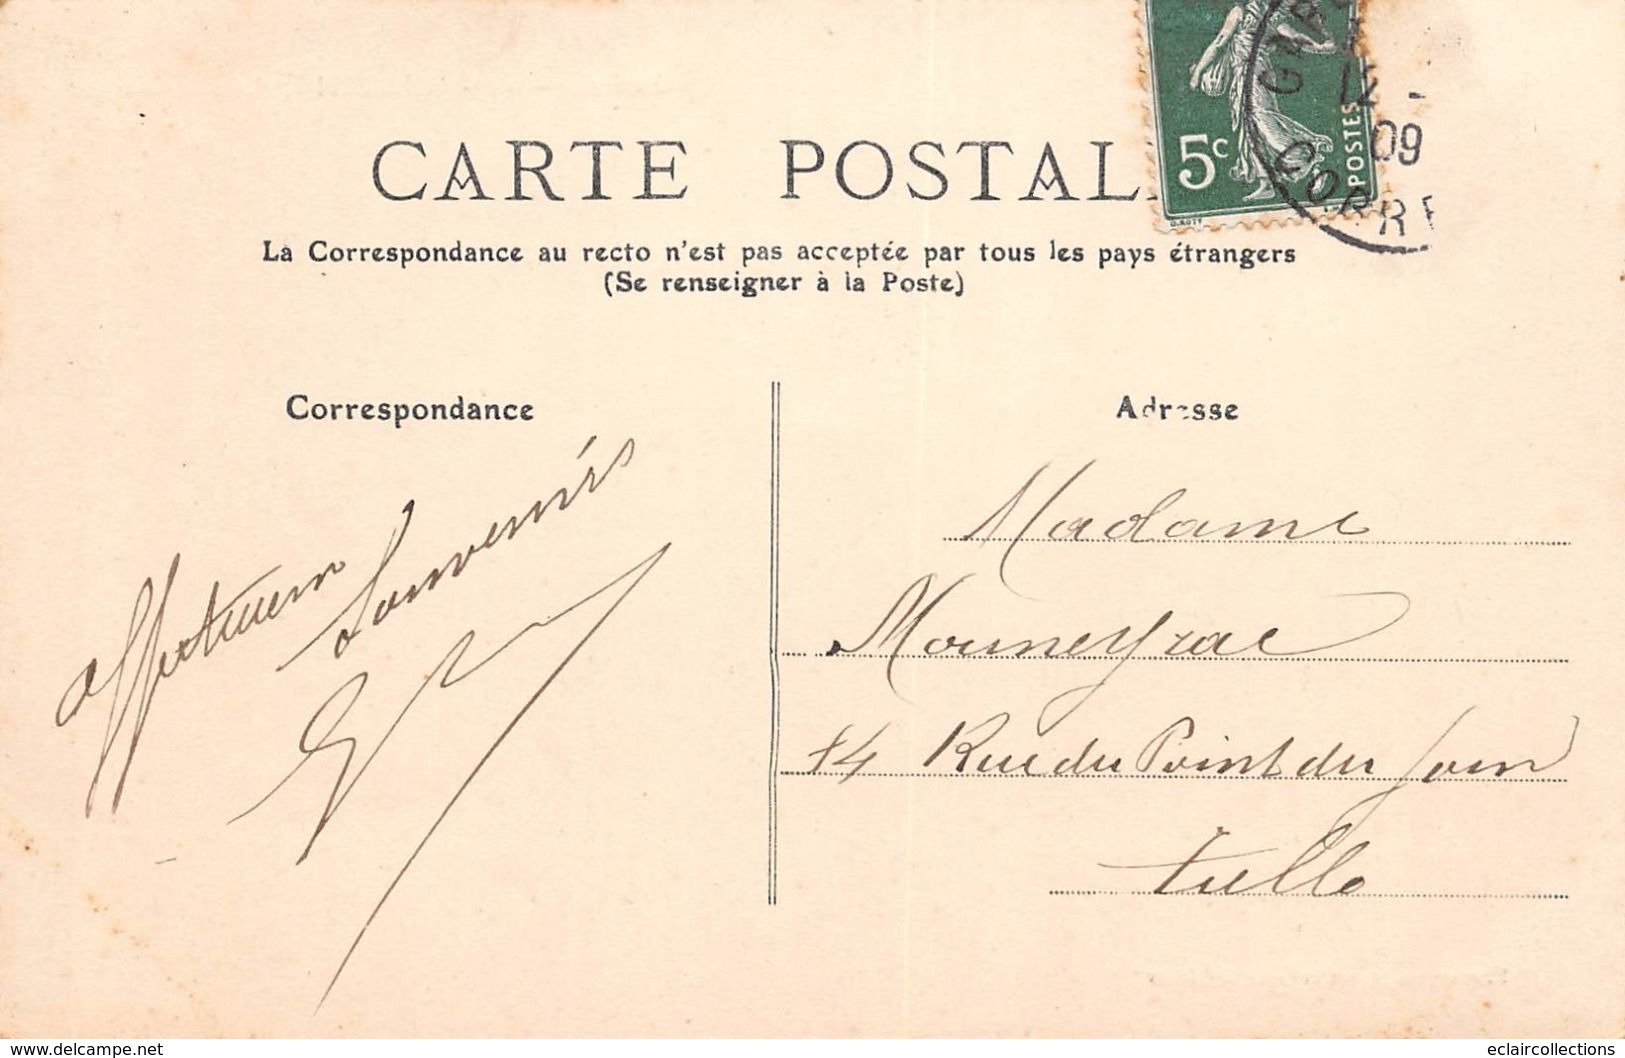 CARTE POSTAL
5c
POSTES
O. ROTY
GAR
12 -
09
CORRE
La Correspondance au recto n'est pas acceptée par tous les pays étrangers
(Se renseigner à la Poste)
Correspondance
Adresse
affectueux
Souvenirs
Madame
Mouneyrac
14 Rue du Point du Jour
Tulle
www.delcampe.net
eclaircollections